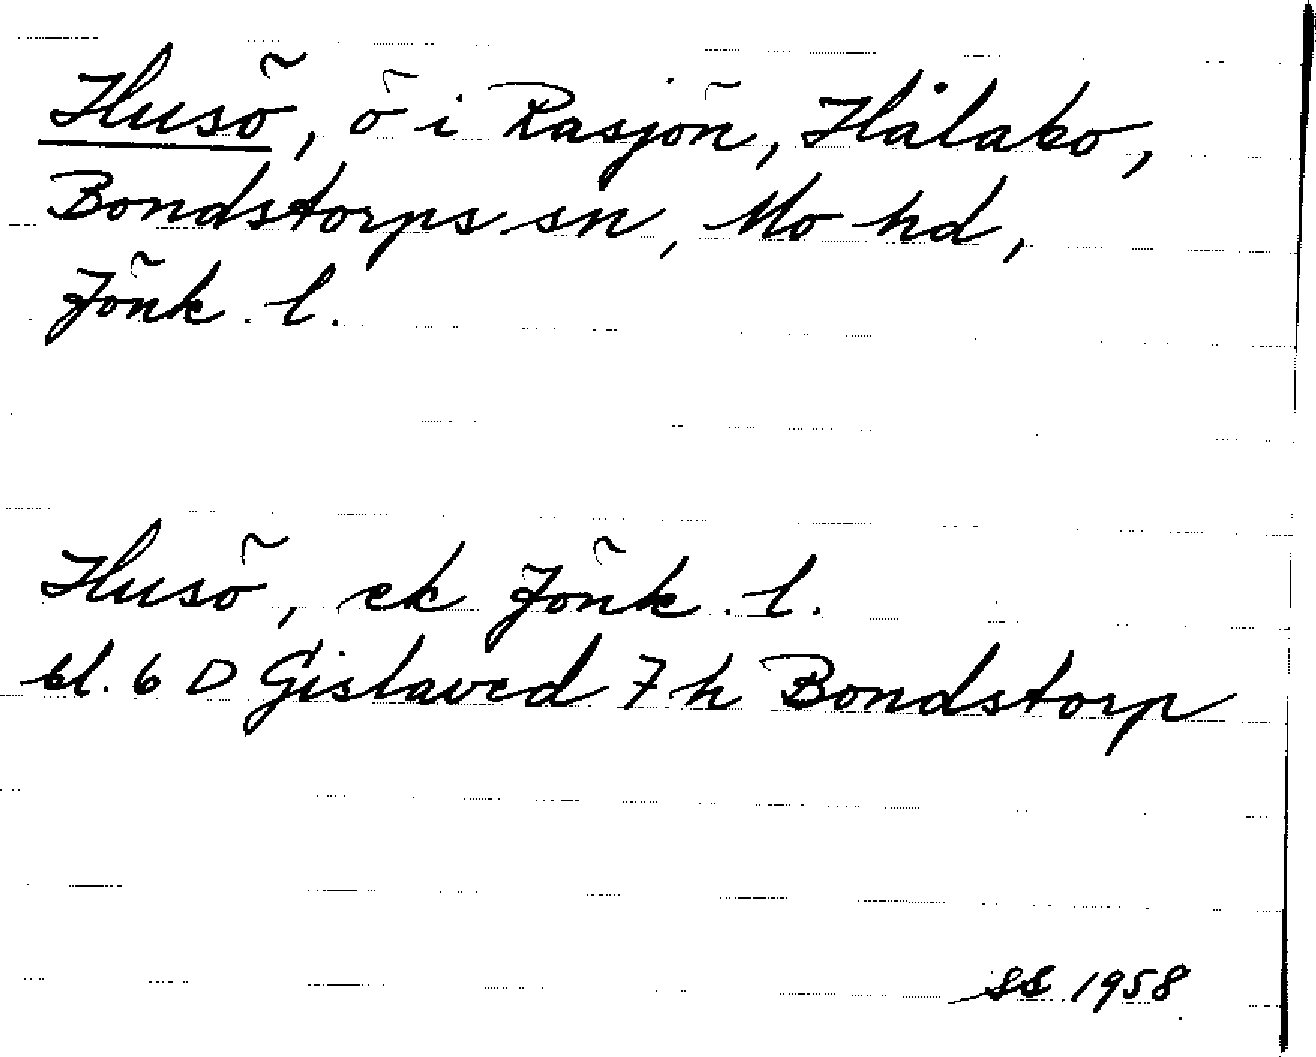 Husö, ö i Rasjön, Hålabo,
Bondstorps sn, Mo hd,
Jönk. l.
Husö, ek Jönk. l.
bl. 6 D Gislaved 7 h Bondstorp
SS 1958